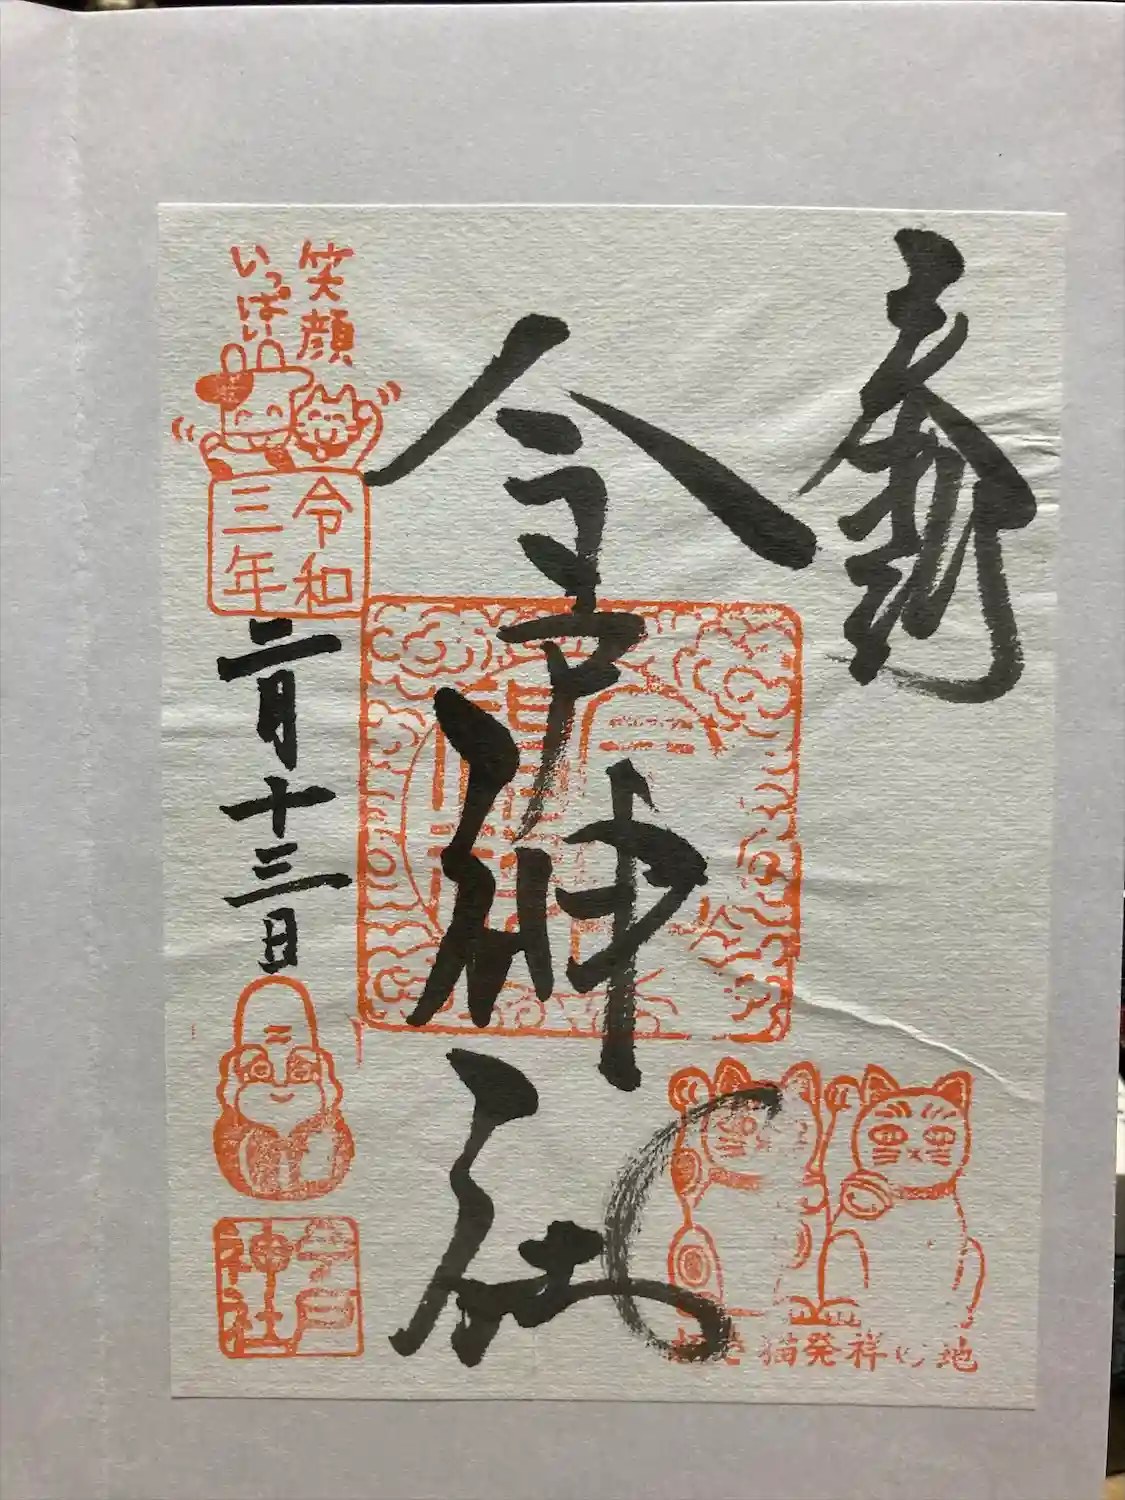 奉拝
今戸神社
笑顔
いっぱい
令和
三年
二月十三日
今戸
神社
招き猫発祥の地